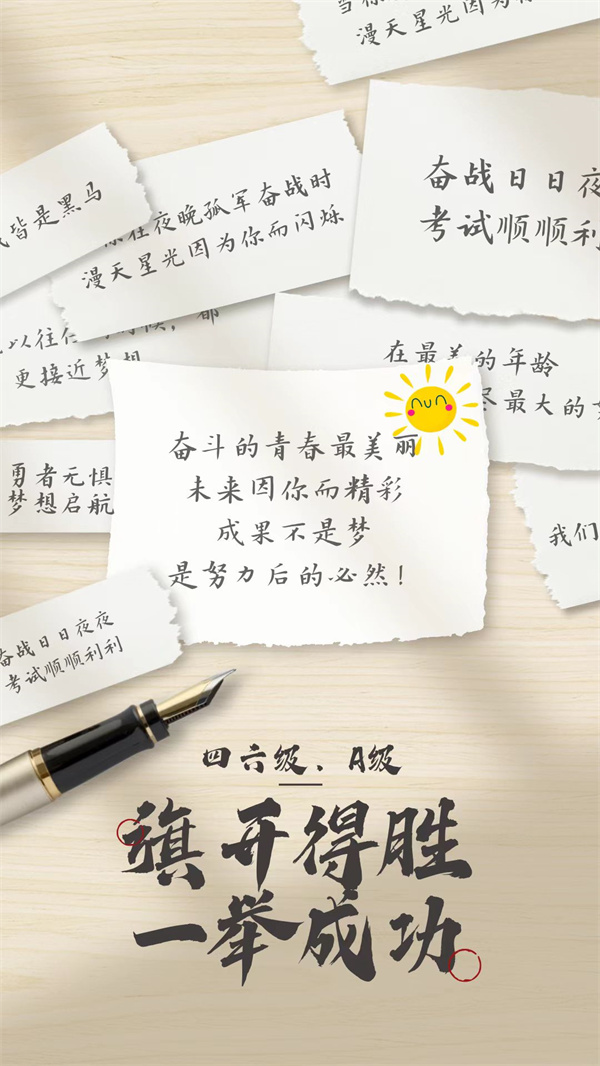 漫天星光因为你
奋战日日夜
考试顺顺利
皆是黑马
在夜晚孤军奋战时
漫天星光因为你而闪烁
以往
更接近梦想
在最美的年龄
最大的
勇者无惧
梦想启航
奋斗的青春最美丽
未来因你而精彩
成果不是梦
是努力后的必然！
我们
奋战日日夜夜
考试顺顺利利
四六级、A级
旗开得胜
一举成功